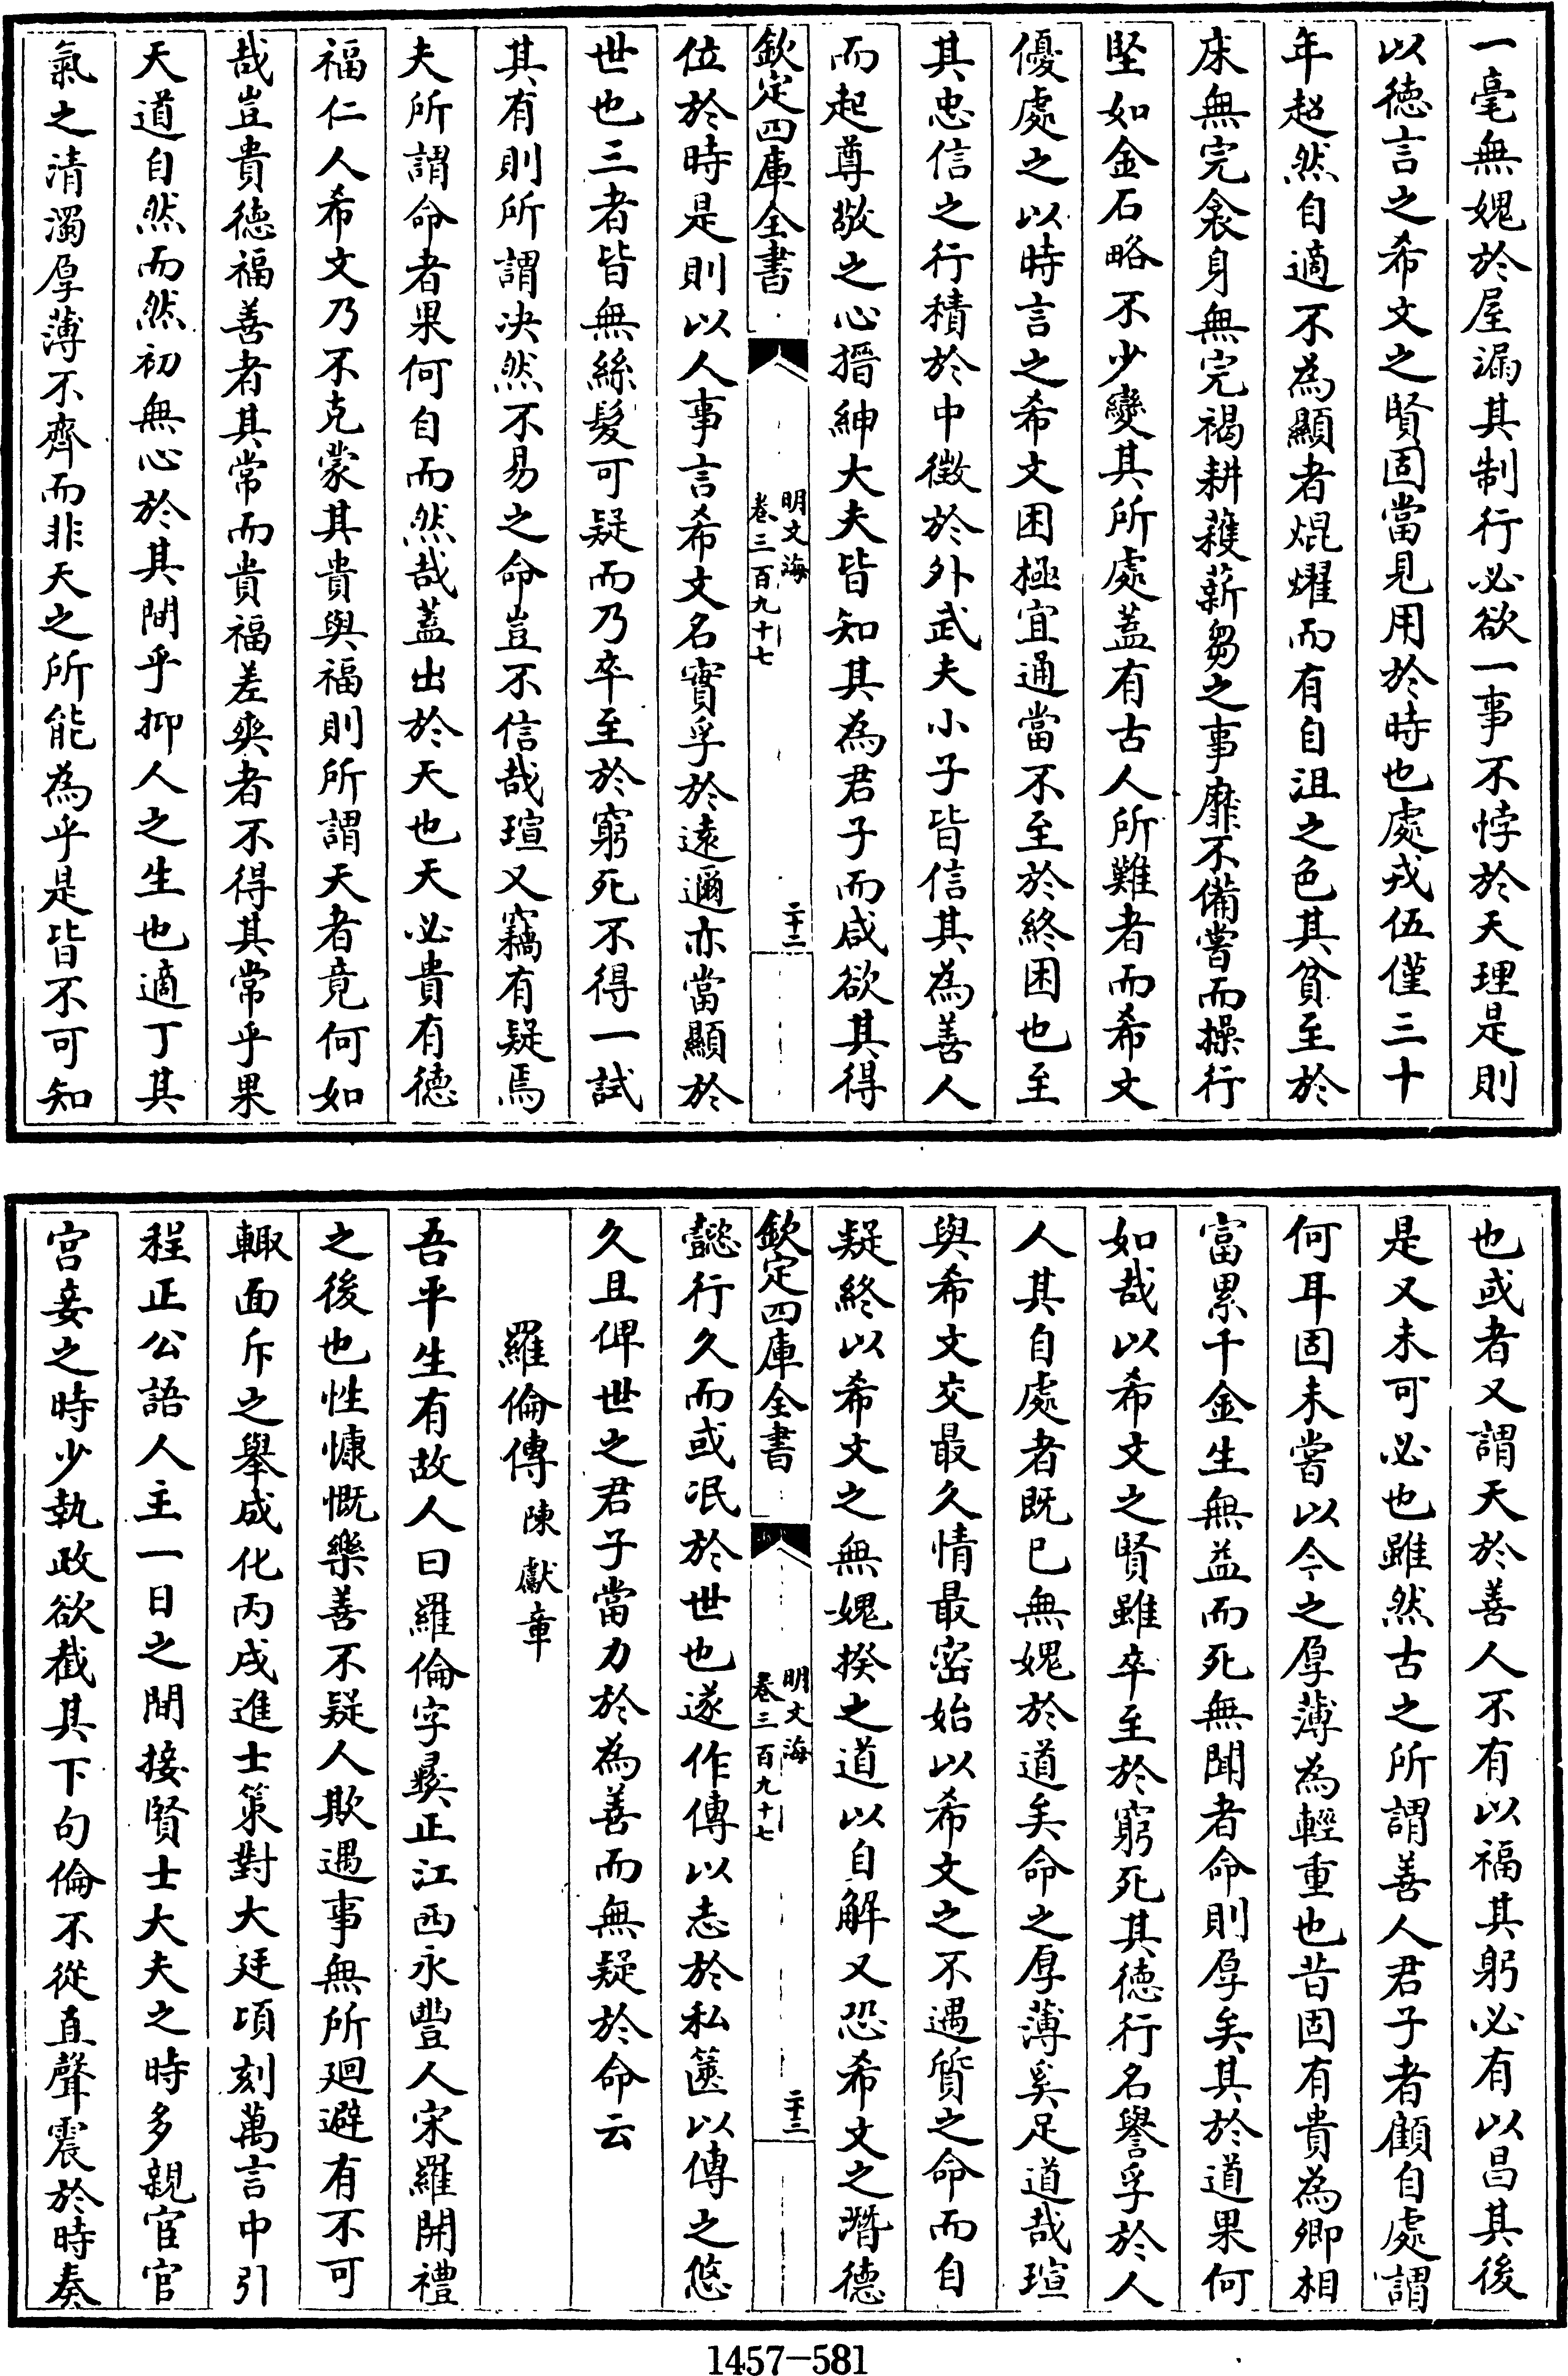 一毫無媿於屋漏其制行必欲一事不悖於天理是則
以徳言之希文之賢固當見用於時也處戎伍僅三十
年超然自適不為顯者焜燿而有自沮之色其貧至於
床無完衾身無完褐耕蓘薪芻之事靡不備嘗而操行
堅如金石略不少變其所處盖有古人所難者而希文
優處之以時言之希文困極宜通當不至於終困也至
其忠信之行積於中徵於外武夫小子皆信其為善人
而起尊敬之心搢紳大夫皆知其為君子而咸欲其得
欽定四庫全書
明文海
卷三百九十七
二十二
位於時是則以人事言希文名實孚於遠邇亦當顯於
世也三者皆無絲髮可疑而乃卒至於窮死不得一試
其有則所謂决然不易之命豈不信哉瑄又竊有疑焉
夫所謂命者果何自而然哉蓋出於天也天必貴有德
福仁人希文乃不克蒙其貴與福則所謂天者竟何如
哉豈貴徳福善者其常而貴福差爽者不得其常乎果
天道自然而然初無心於其間乎抑人之生也適丁其
氣之清濁厚薄不齊而非天之所能為乎是皆不可知
也或者又謂天於善人不有以福其躬必有以昌其後
是又未可必也雖然古之所謂善人君子者顧自處謂
何耳固未嘗以今之厚薄為輕重也昔固有貴為卿相
富累千金生無益而死無聞者命則厚矣其於道果何
如哉以希文之賢雖卒至於窮死其徳行名譽孚於人
人其自處者既已無媿於道矣命之厚薄奚足道哉瑄
與希文交最久情最密始以希文之不遇質之命而自
疑終以希文之無媿揆之道以自解又恐希文之潛德
欽定四庫全書
明文海
卷三百九十七
二十三
懿行久而或泯於世也遂作傳以志於私篋以傳之悠
久且俾世之君子當力於為善而無疑於命云
羅倫傳 陳獻章
吾平生有故人曰羅倫字彛正江西永豐人宋羅開禮
之後也性慷慨樂善不疑人欺遇事無所廻避有不可
輙面斥之舉成化丙戌進士策對大廷頃刻萬言中引
程正公語人主一日之間接賢士大夫之時多親宦官
宫妾之時少執政欲截其下句倫不從直聲震於時奏
1457—581